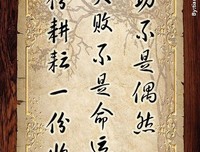 功不是偶然
失败不是命运
份耕耘一份收